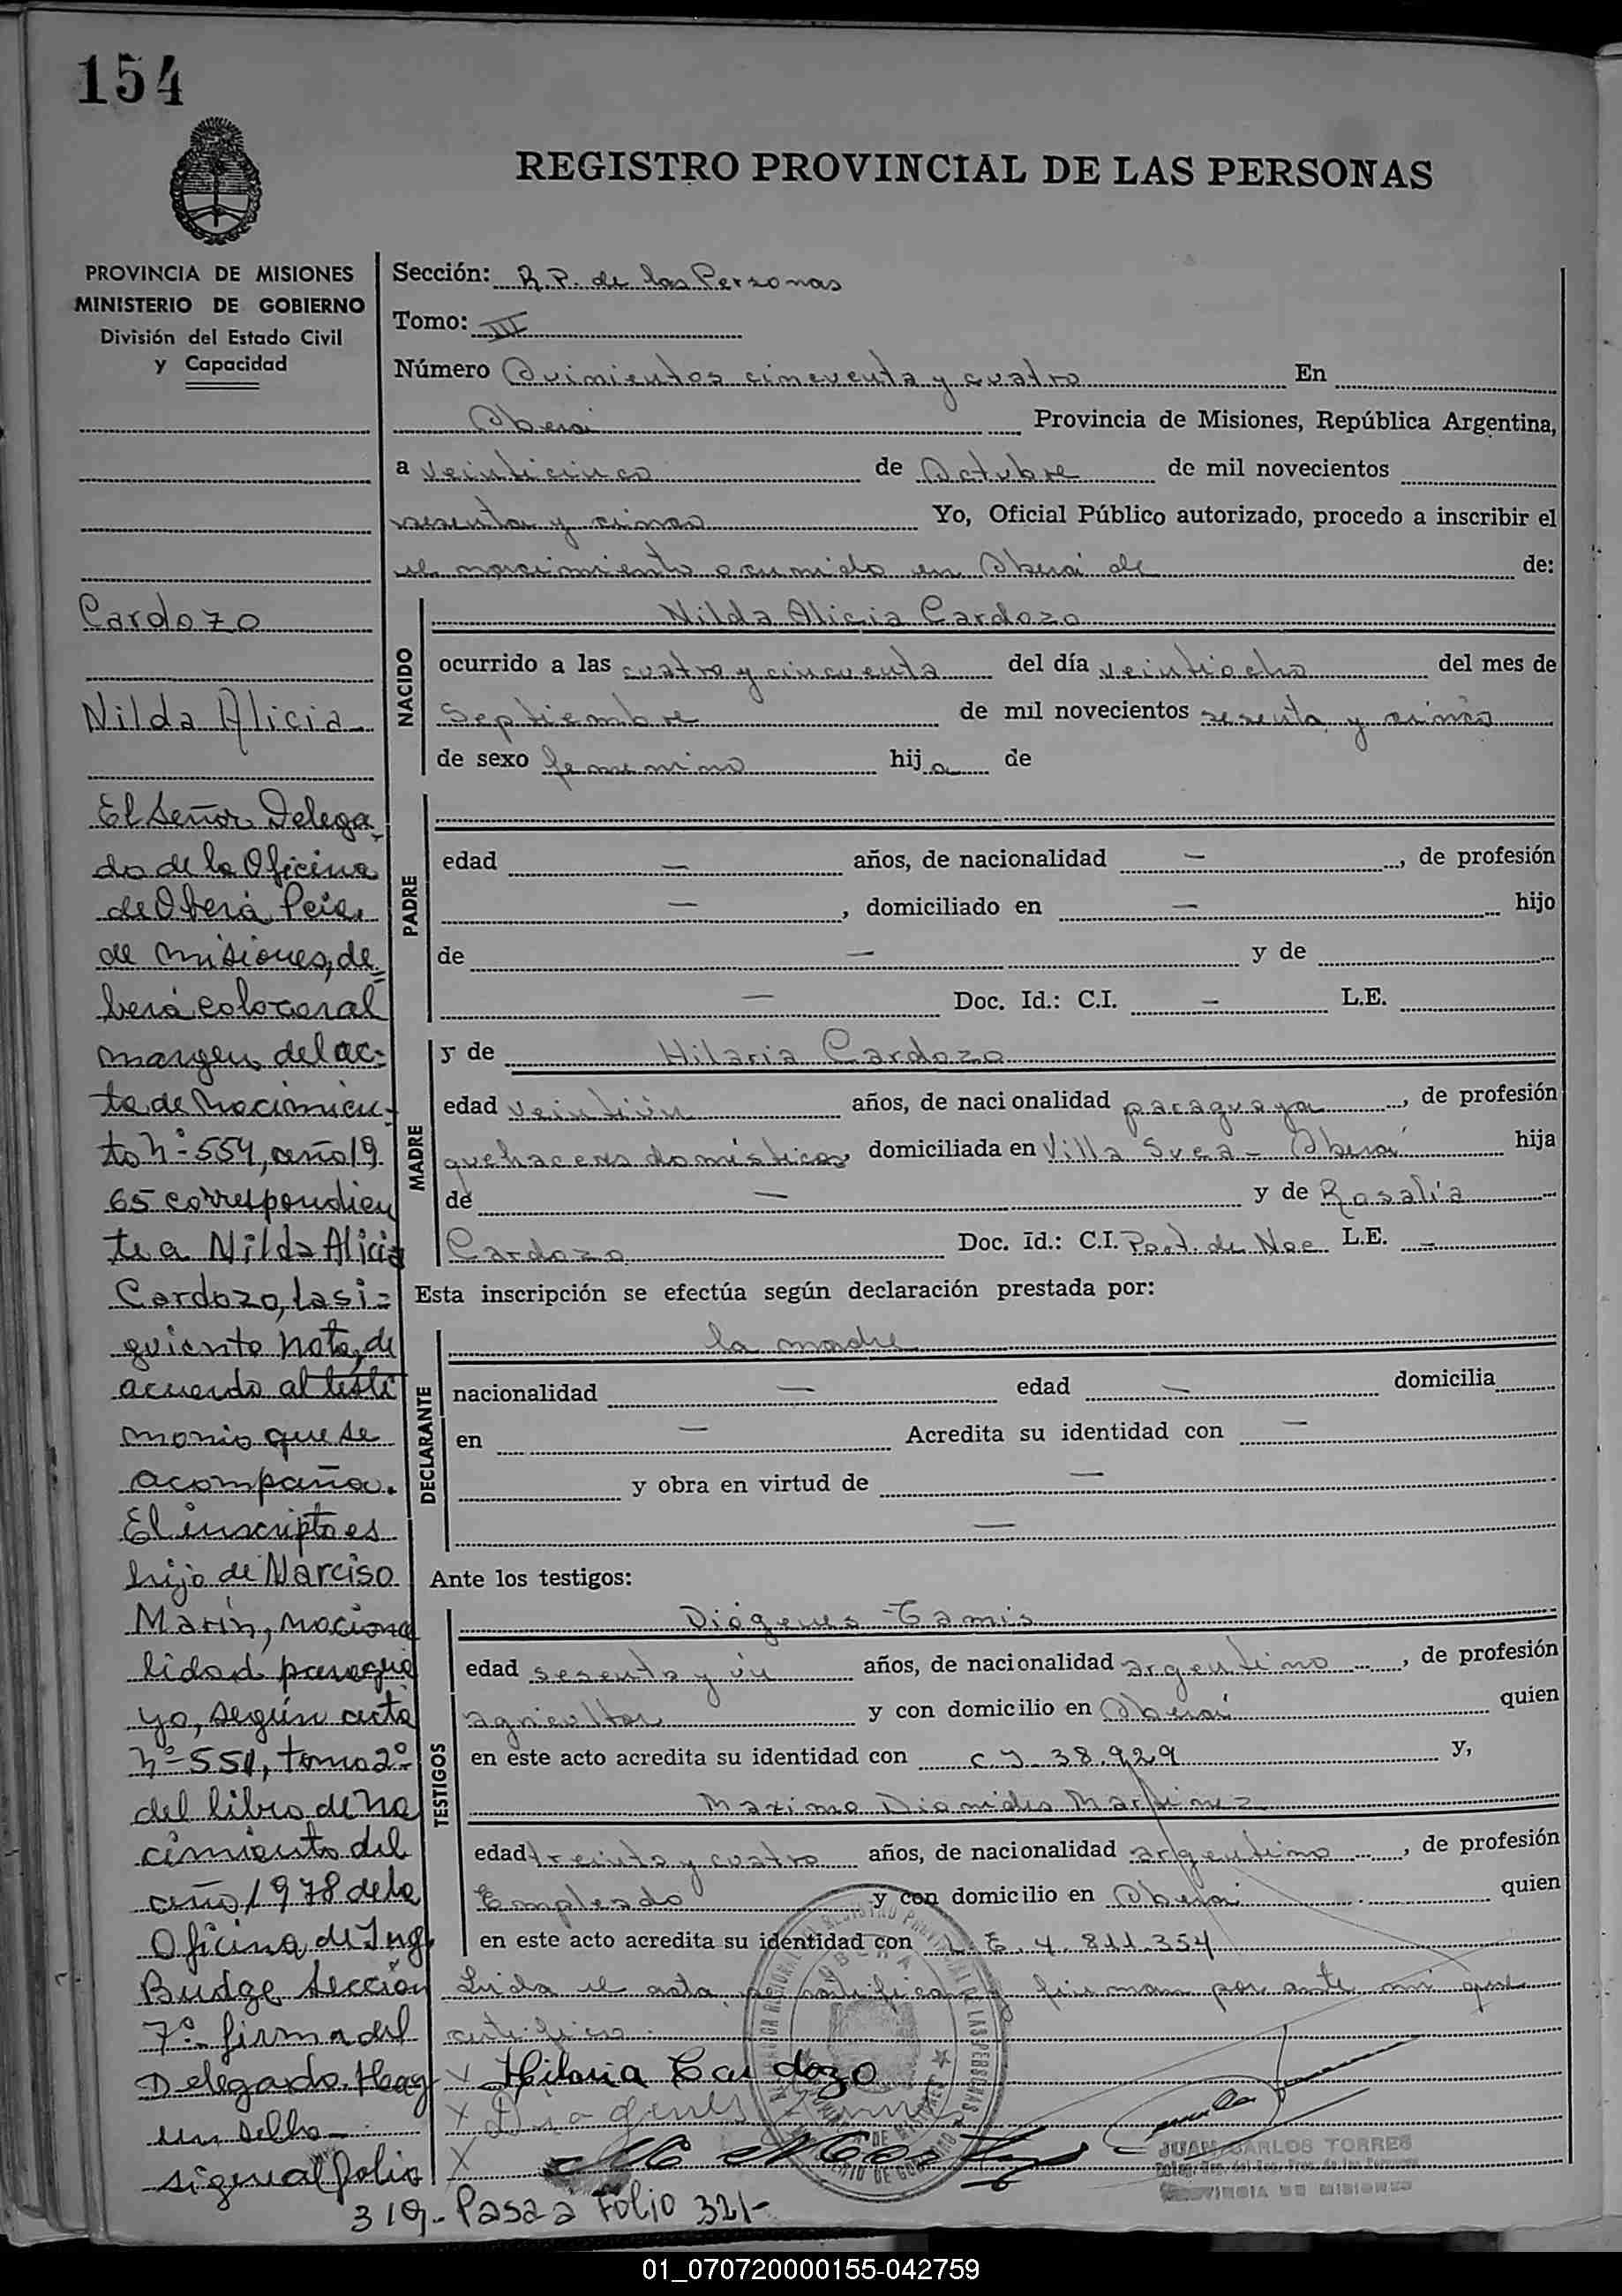 154
REGISTRO PROVINCIAL DE LAS PERSONAS
PROVINCIA DE MISIONES
MINISTERIO DE GOBIERNO
División del Estado Civil
y Capacidad
Cardozo
Nilda Alicia
El Señor Delega
do de la Oficina
de Oberá Pcia.
de Misiones, de=
berá colocar al
margen del ac=
ta de nacimien-
to nº 554, año 19
65 correspondien
te a Nilda Alicia
Cardozo, la si=
guiente nota, de
acuerdo al testi
monio que se
acompaña.
El inscripto es
hijo de Narciso
Marin, naciona
lidad paragua
yo, según acta
nº 551, tomo 2º
del libro de na
cimiento del
año 1978 de la
Oficina de Ing.
Budge Sección
7º firma del
Delegado. Hay
un sello
sigue al folio
319.- Pasa a Folio 321-
Sección: R.P. de las Personas
Tomo: III
Número Quinientos cincuenta y cuatro En
Oberá Provincia de Misiones, República Argentina,
a veinticinco de Octubre de mil novecientos
sesenta y cinco Yo, Oficial Público autorizado, procedo a inscribir el
el nacimiento ocurrido en Oberá de de:
NACIDO
Nilda Alicia Cardozo
ocurrido a las cuatro y cincuenta del día veintiocho del mes de
Septiembre de mil novecientos sesenta y cinco
de sexo femenino hija de
PADRE
edad — años, de nacionalidad — , de profesión
— , domiciliado en — hijo
de — y de
— Doc. Id.: C.I. — L.E.
MADRE
y de Hilaria Cardozo
edad veintiún años, de nacionalidad paraguaya , de profesión
quehaceres domésticos, domiciliada en Villa Svea - Oberá hija
de — y de Rosalía
Cardozo Doc. Id.: C.I. Part. de Nac L.E. —
Esta inscripción se efectúa según declaración prestada por:
DECLARANTE
la madre
nacionalidad — edad — domicilia
en — Acredita su identidad con —
y obra en virtud de —
—
Ante los testigos:
TESTIGOS
Diógenes Tamis
edad sesenta y un años, de nacionalidad argentino , de profesión
agricultor y con domicilio en Oberá quien
en este acto acredita su identidad con C I 38.929 y,
Maximo Diomides Martinez
edad treinta y cuatro años, de nacionalidad argentino , de profesión
Empleado y con domicilio en Oberá quien
en este acto acredita su identidad con L.E. 4.811.354
Leida el acta, se ratifican y firman por ante mi que
certifico.
X Hilaria Cardozo
X Diogenes
X
JUAN CARLOS TORRES
PROVINCIA DE MISIONES
01_070720000155-042759